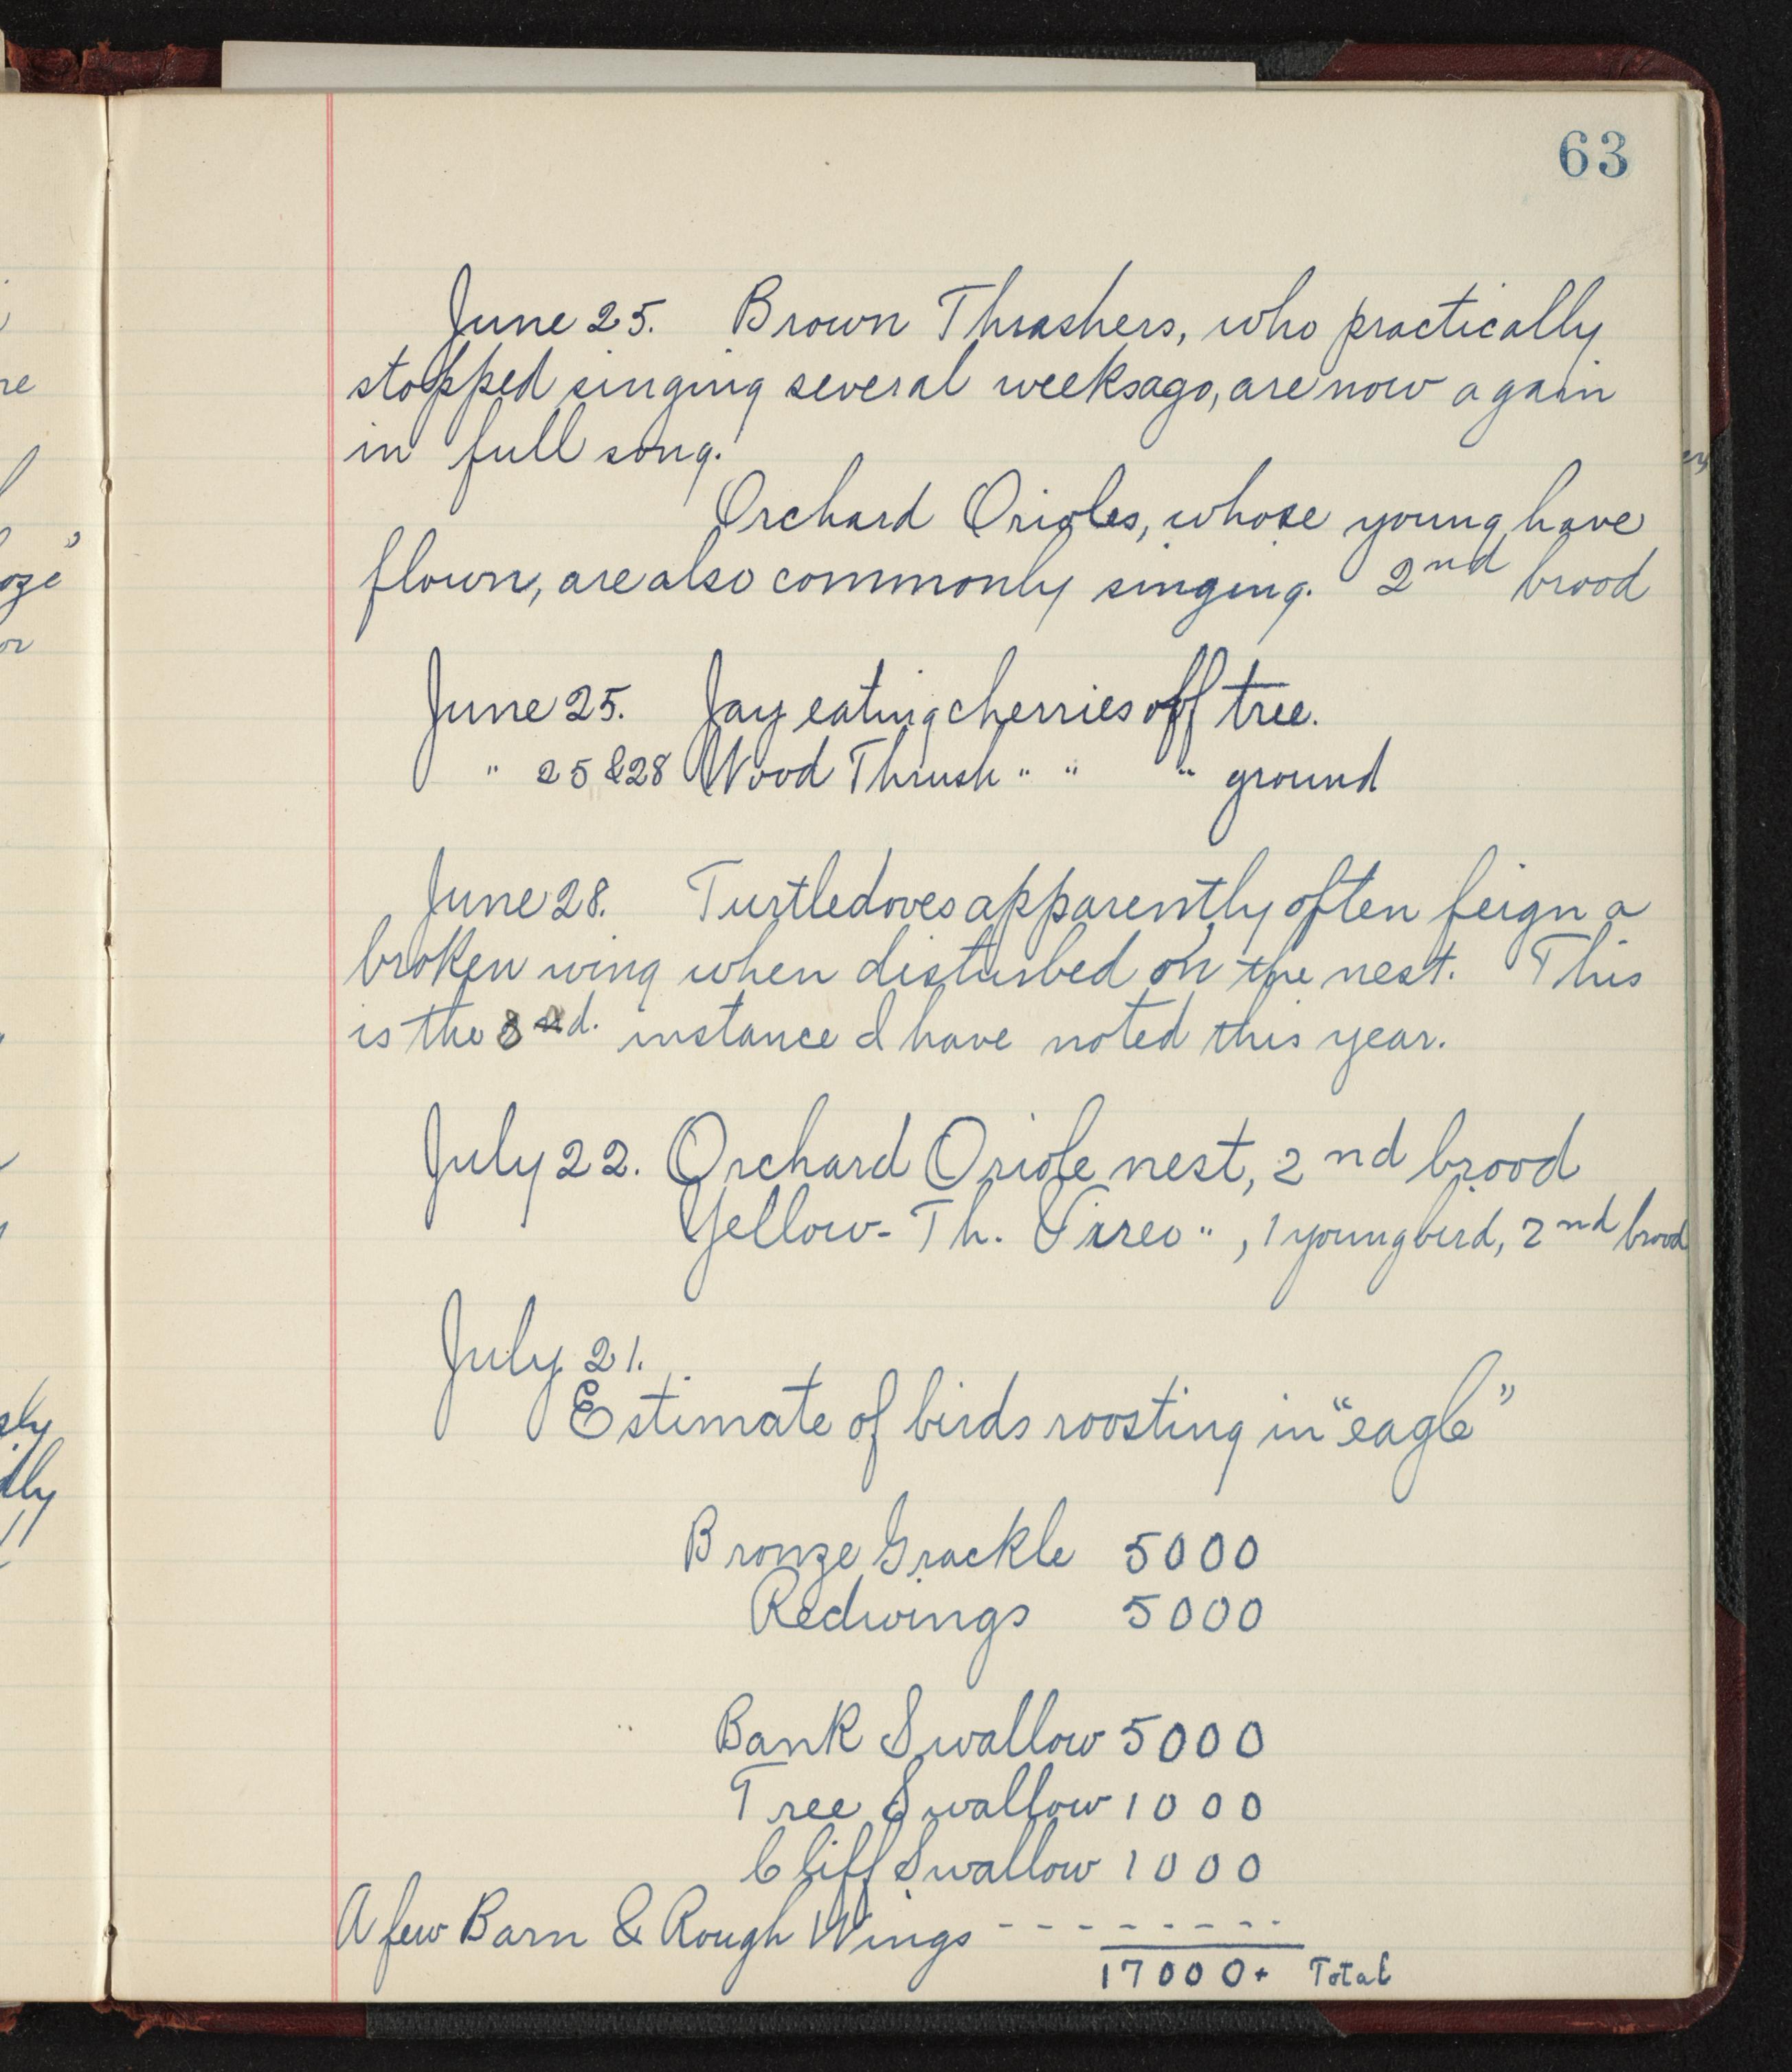 63
June 25. Brown Thrashers, who practically
stopped singing several weeks ago, are now again
in full song.
Orchard Orioles, whose young have
flown, are also commonly singing. 2nd brood
June 25. Jay eating cherries off tree.
" 25 & 28 Wood Thrush " " " ground
June 28. Turtledoves apparently often feign a
broken wing when disturbed on the nest. This
is the 3rd. instance I have noted this year.
July 22. Orchard Oriole nest, 2nd brood
Yellow-Th. Vireo " , 1 young bird, 2nd brood
July 21.
Estimate of birds roosting in "eagle"
Bronze Grackle 5000
Redwings 5000
Bank Swallow 5000
Tree Swallow 1000
Cliff Swallow 1000
A few Barn & Rough Wings - - - - - - - - -
17000+ Total